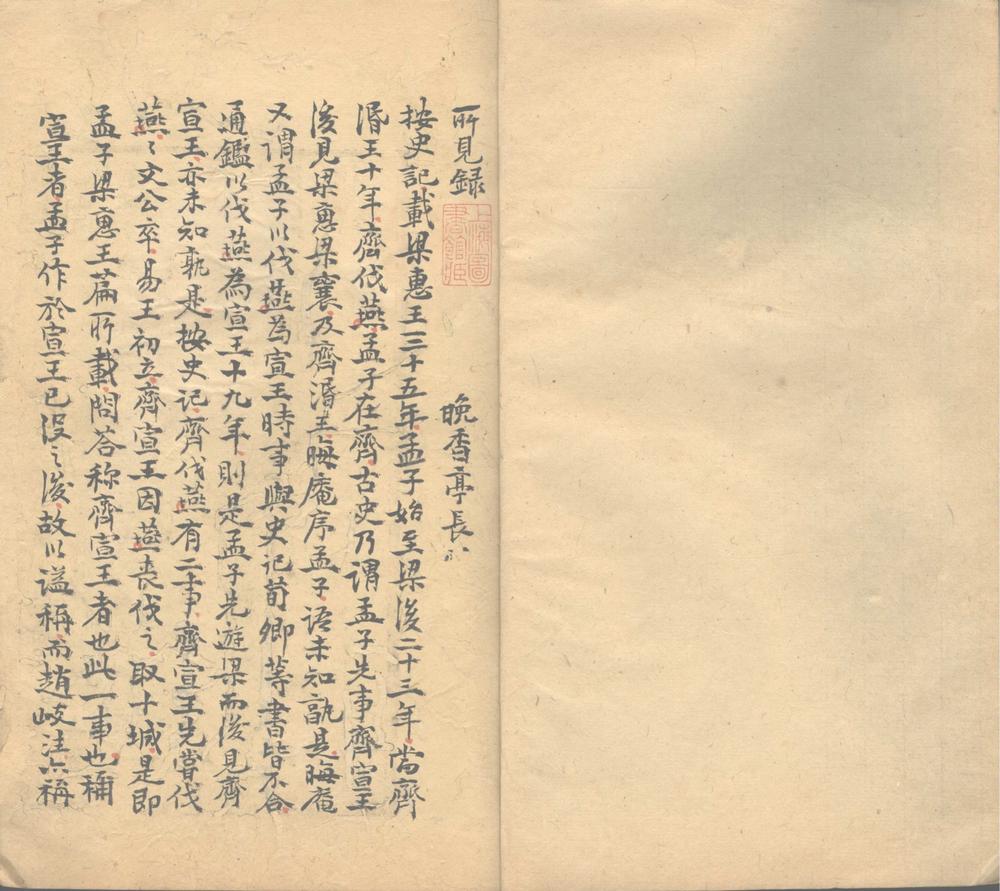 所見錄
上海圖書館藏
晚香亭長
按史記載梁惠王三十五年孟子始至梁後二十三年當齊
湣王十年齊伐燕孟子在齊古史乃謂孟子先事齊宣王
後見梁惠梁襄及齊湣王晦庵序孟子語未知孰是晦庵
又謂孟子以伐燕為宣王時事與史記荀卿等書皆不合
通鑑以伐燕為宣王十九年則是孟子先遊梁而後見齊
宣王亦未知孰是按史記齊伐燕有二事齊宣王先嘗伐
燕〻文公卒易王初立齊宣王因燕喪伐之取十城是即
孟子梁惠王篇所載問答称齊宣王者也此一事也稱
宣王者孟子作於宣王已沒之後故以謚稱而趙岐注亦稱